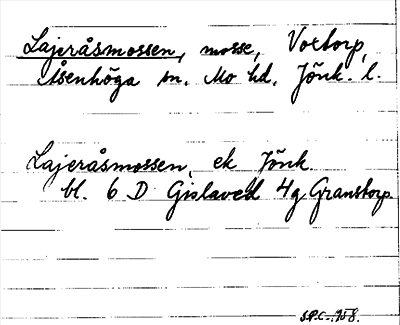 Lajeråsmossen, mosse, Voxtorp,
Åsenhöga sn. Mo hd. Jönk. l.
Lajeråsmossen, ek Jönk
bl. 6 D Gislaved 4g Granstorp.